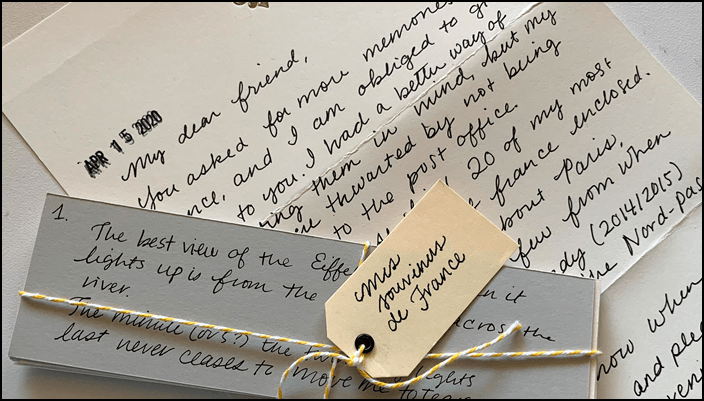 APR 15 2020
My dear friend,
You asked for more memories
nce, and I am obliged to
to you. I had a better way of
ing them in mind, but my
thwarted by not being
to the post office.
20 of my most
France enclosed.
about Paris,
few from when
dy (2014/2015)
Nord-Pas
now when
and
1.
The best view of the Eiffe
lights up is from the
it
across the
river.
The minute (or 5?) the
lights
last never ceases to move me to tears
mes
souvenirs
de France